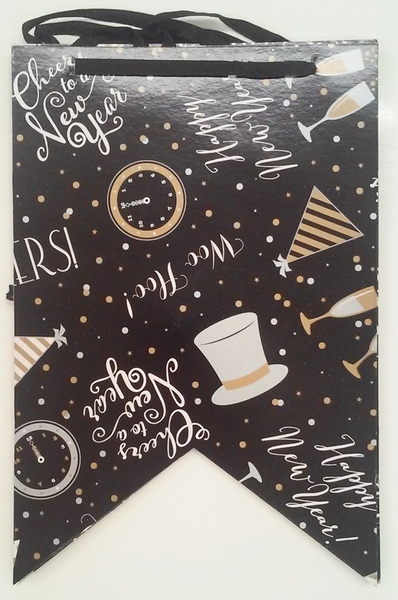 Cheers
to a
New
Year
Happy
New Year
ERS!
Woo Hoo!
Cheers
to a
New
Year
Happy
New Year!